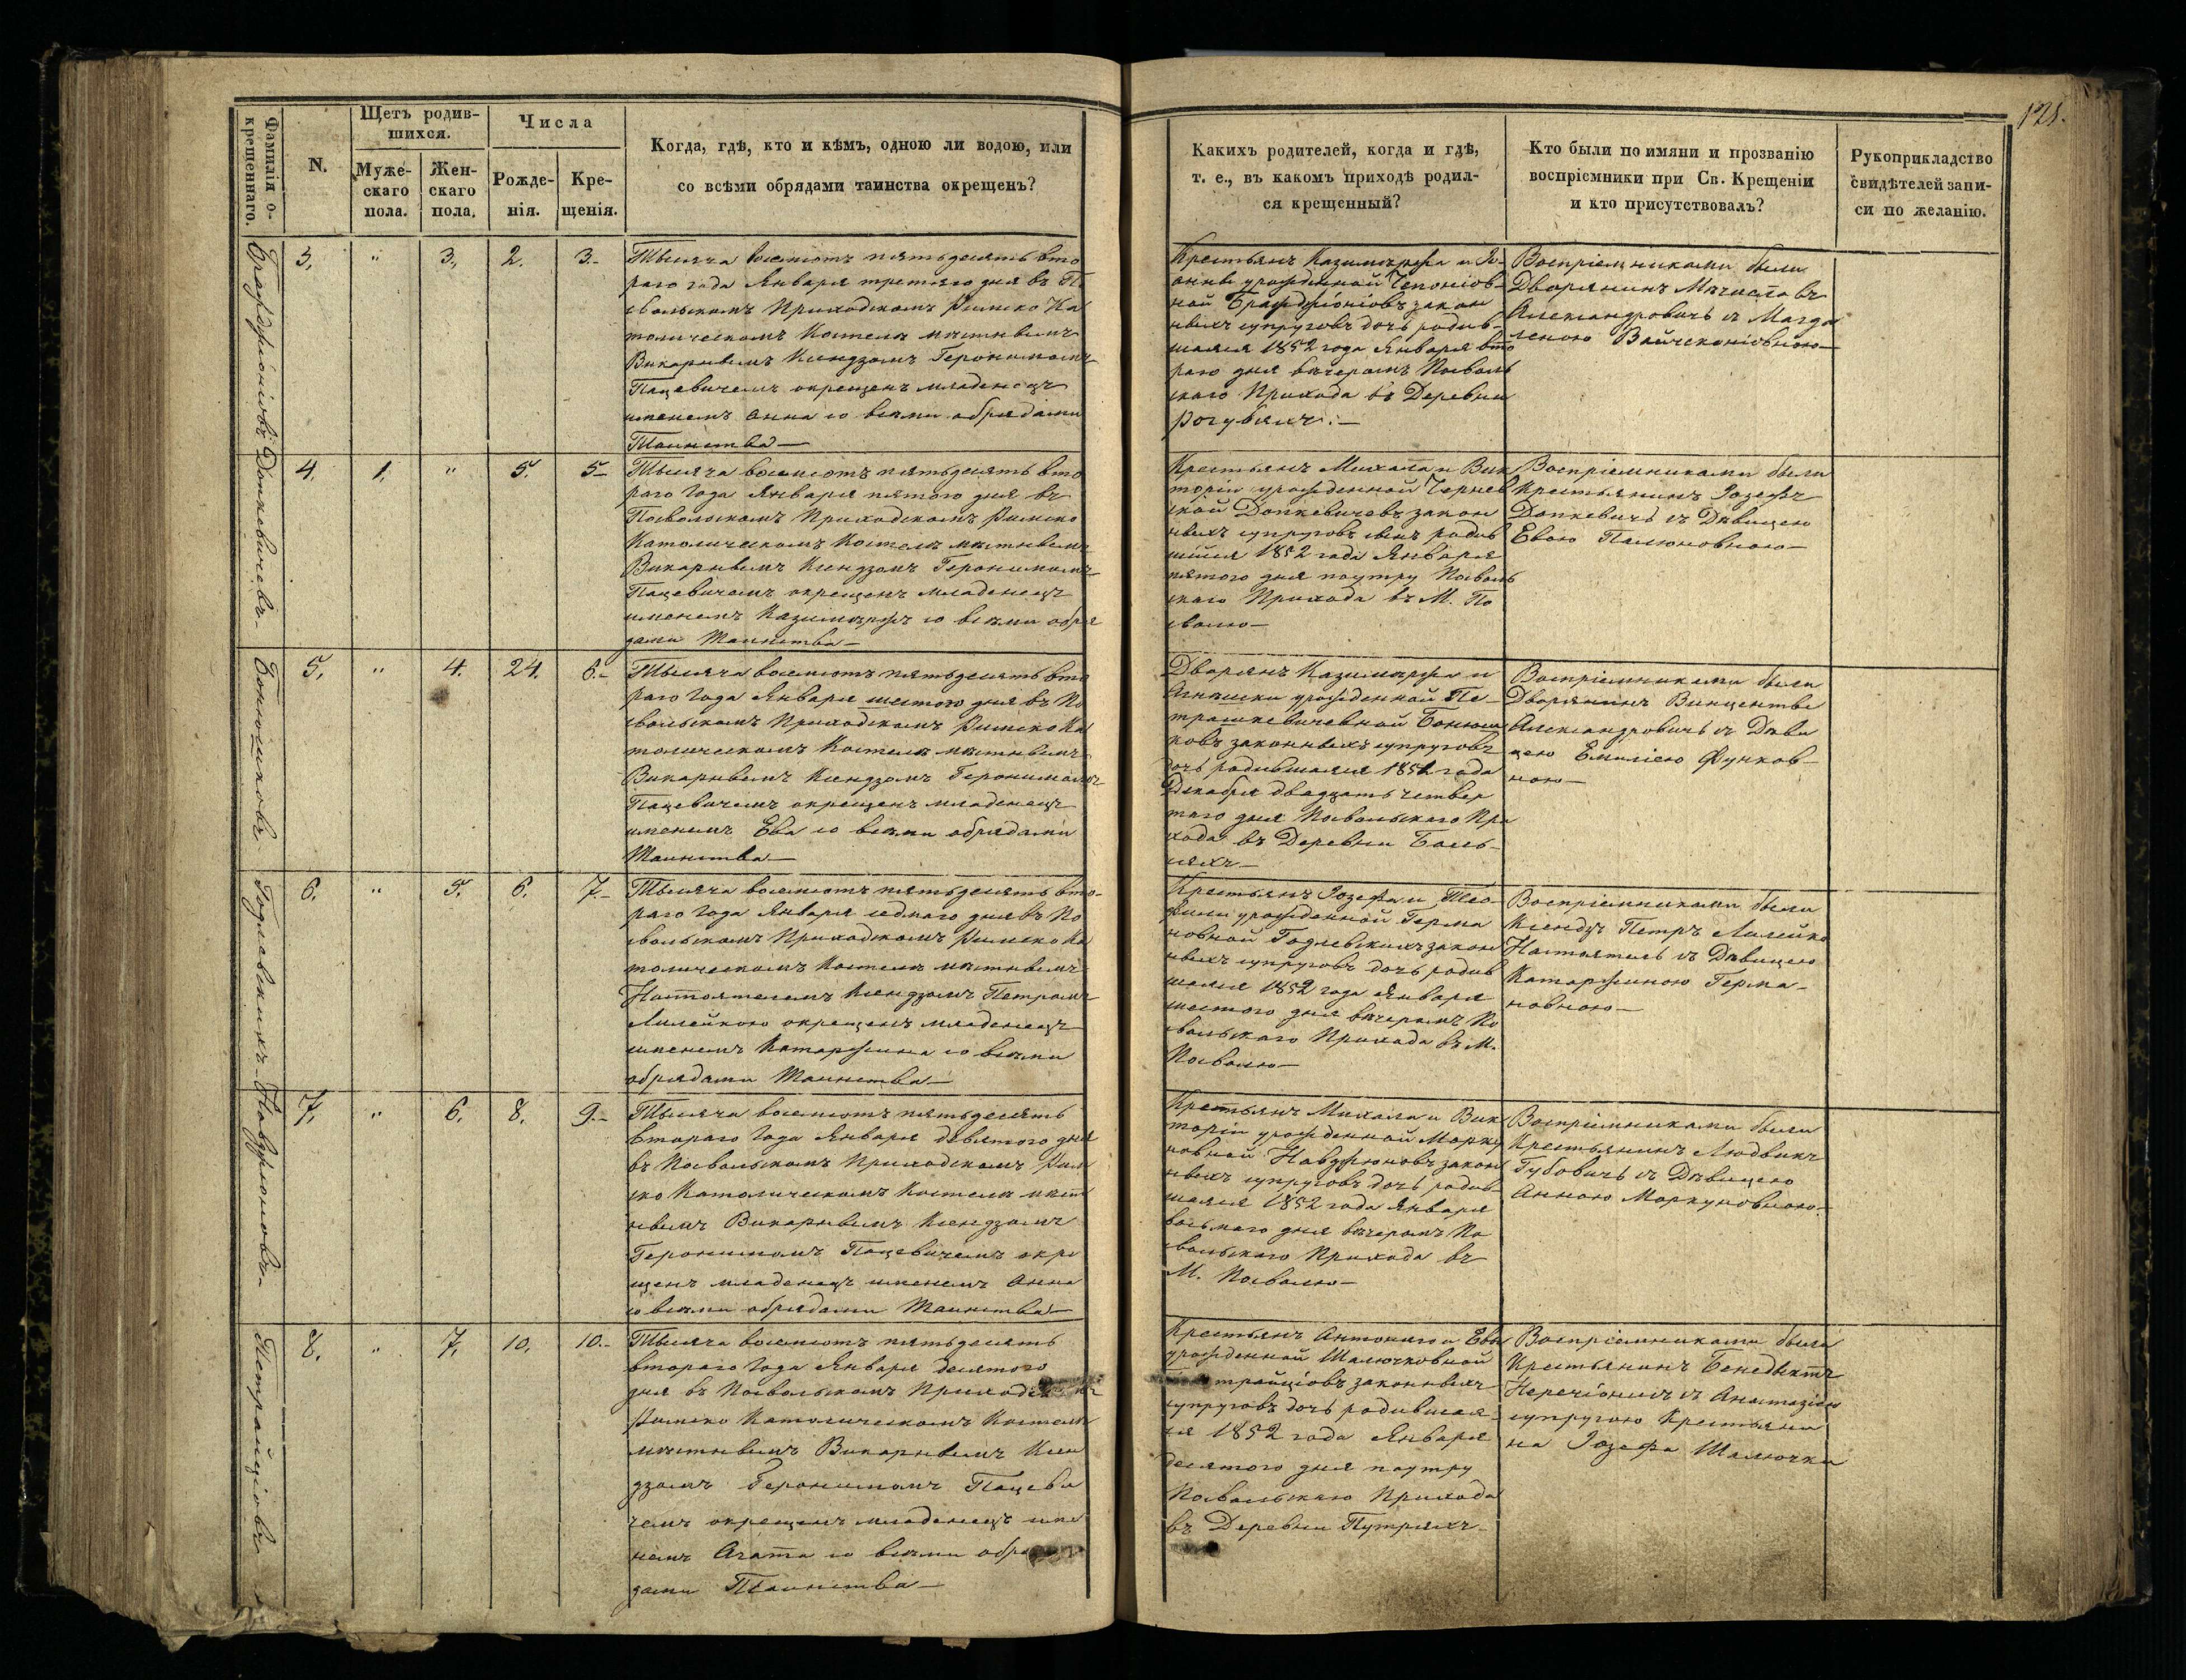 121.
Фамилія о-
крещеннаго.
N.
Щетъ родив-
шихся.
Муже-
скаго
пола.
Жен-
скаго
пола.
Числа
Рожде-
нія.
Кре-
щенія.
Когда, гдѣ, кто и кѣмъ, одною ли водою, или
со всѣми обрядами таинства окрещенъ?
Какихъ родителей, когда и гдѣ,
т. е., въ какомъ приходѣ родил-
ся крещенный?
Кто были по имяни и прозванію
воспріемники при Св. Крещеніи
и кто присутствовалъ?
Рукоприкладство
свидѣтелей запи-
си по желанію.
3. " 3. 2. 3.-
Тысяча восемсотъ пятьдесятъ вто
раго года Января третяго дня въ По
свольскомъ Приходскомъ Римско Ка
толическомъ Костелѣ мѣстнымъ
Викарнымъ Ксендзомъ Геронимомъ
Пацевичемъ окрещенъ младенецъ
именемъ Анна со всѣми обрядами
Таинства—
Крестьянъ Казимѣржа и
урожденной
закон
ныхъ супруговъ дочь родив-
шаяся 1852 года Января вто
раго дня вѣчеромъ Посволь
скаго Прихода въ Деревни
Рогувяхъ.—
Воспріемниками были
Дворянинъ Мѣчиславъ
Александровичъ съ Магда
леною
Допкевичевъ.
4. 1. " 5. 5-
Тысяча восемсотъ пятьдесятъ вто
раго Года Января пятого дня въ
Посвольскомъ Приходскомъ Римско
Католическомъ Костелѣ мѣстнымъ
Викарнымъ Ксендзомъ Геронимомъ
Пацевичемъ окрещенъ младенецъ
именемъ Казимѣржъ со всѣми обря
дами Таинства—
Крестьянъ Михала и Вик
торіи урожденной Чернев
ской Допкевичевъ закон
ныхъ супруговъ сынъ родив
шійся 1852 года Января
пятого дня поутру Посволь
скаго Прихода въ М. По
сволю—
Воспріемниками были
Крестьянинъ Іозефъ
Допкевичъ съ Дѣвицею
Евою Палюновною—
Бонюшковъ
5. " 4. 24. 6.-
Тысяча восемсотъ пятьдесятъ вто
раго Года Января шестого дня въ По
свольскомъ Приходскомъ Римско Ка
толическомъ Костелѣ мѣстнымъ
Викарнымъ Ксендзомъ Геронимомъ
Пацевичемъ окрещенъ младенецъ
именемъ Ева со всѣми обрядами
Таинства—
Дворянъ Казимѣржа и
Агнѣшки урожденной Пе-
трашкевичевной Бонюш
ковъ законныхъ супруговъ
дочь родившаяся 1851 года
Декабря двадцать четвер
таго дня Посвольскаго При
хода въ Деревни Баль-
сяхъ—
Воспріемниками были
Дворянинъ Винцентый
Александровичъ съ Дѣви
цею Емиліею Функов-
ною—
Годлевскихъ
6. " 5. 6. 7.-
Тысяча восемсотъ пятьдесятъ вто-
раго Года Января седмаго дня въ По
свольскомъ Приходскомъ Римско Ка
толическомъ Костелѣ мѣстнымъ
Настоятелемъ Ксендзомъ Петромъ
Лилейкою окрещенъ младенецъ
именемъ Катаржина со всѣми
обрядами Таинства—
Крестьянъ Іозефа и Тео-
фили урожденной Герма
новной Годлевскихъ закон
ныхъ супруговъ дочь родив
шаяся 1852 года Января
шестого дня вѣчеромъ По
свольскаго Прихода въ М.
Посволю—
Воспріемниками были
Ксендзъ Петръ Лилейко
Настоятель съ Дѣвицею
Катаржиною Герма-
новною—
7. " 6. 8. 9.-
Тысяча восемсотъ пятьдесятъ
втораго Года Января девятого дня
въ Посвольскомъ Приходскомъ Рим
ско Католическомъ Костелѣ мѣст
нымъ Викарнымъ Ксендзомъ
Геронимомъ Пацевичемъ окре
щенъ младенецъ именемъ Анна
со всѣми обрядами Таинства—
Крестьянъ Михала и Вик
торіи урожденной Марку
новной закон
ныхъ супруговъ дочь родив-
шаяся 1852 года Января
восьмаго дня вѣчеромъ По
свольскаго Прихода въ
М. Посволю—
Воспріемниками были
Крестьянинъ Людвикъ
Губовичъ съ Дѣвицею
Анною Маркуновною.—
Петрайціовъ
8. " 7. 10. 10.-
Тысяча восемсотъ пятьдесятъ
втораго Года Января десятого
дня въ Посвольскомъ Приходскомъ
Римско Католическомъ Костелѣ
мѣстнымъ Викарнымъ Ксен
дзомъ Геронимомъ Пацеви
чемъ окрещенъ младенецъ име
немъ Агата со всѣми обря
дами Таинства—
Крестьянъ Антонего и Евы
урожденной Шалючковной
трайціовъ законныхъ
супруговъ дочь родившая
ся 1852 года Января
десятого дня поутру
Посвольскаго Прихода
въ Деревни Путряхъ—
Воспріемниками были
Крестьянинъ Бенедыктъ
съ Анастазіею
супругою Крестьяни
на Іозефа Шалючки